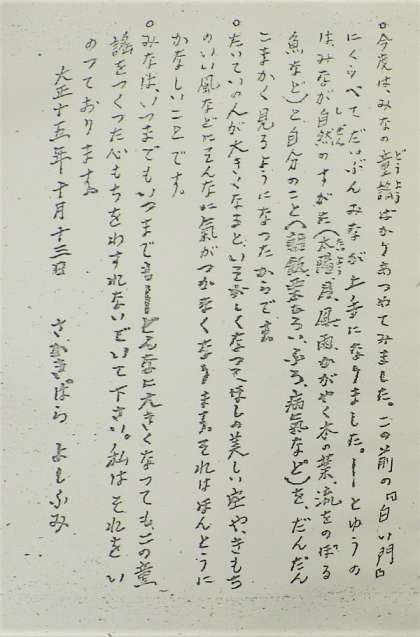 ○今度は、みなの童謡ばかりあつめてみました。この前の「白い門」
にくらべてだいぶんみなが上手になりました。――とゆうの
は、みなが自然のすがた(太陽、月、風、雨、かがやく木の葉、流をのぼる
魚など)と自分のこと( ふろ、病氣など)を、だんだん
こまかく見るようになつたからです。
○たいていの人が大きくなると、いそがしくなつて、ほしの美しい空や、きもち
のいい風などにそんなに氣がつかなくなります。それはほんとうに
かなしいことです。
○みなは、いつまでもいつまでも――どんなに大きくなつても、この童
謡をつくつた心もちをわすれないでいて下さい。私はそれをい
のつております。
大正十五年十月十三日 さかきばら よしふみ